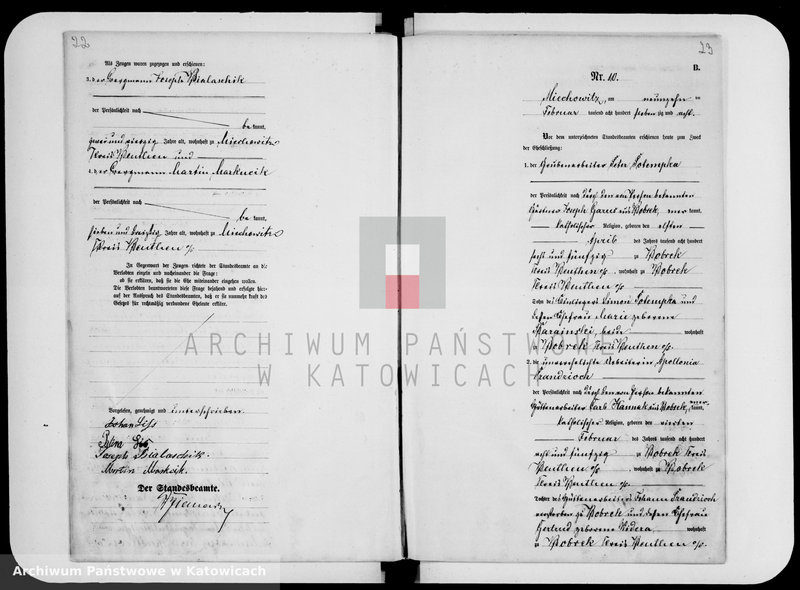 22
Als Zeugen waren zugezogen und erschienen:
3. der Bergmann Joseph Bialaschik
der Persönlichkeit nach
be kannt,
zwei und vierzig Jahre alt, wohnhaft zu Miechowitz
Kreis Beuthen und
4. der Bergmann Martin Markucik
der Persönlichkeit nach
be kannt,
sieben und dreißig Jahre alt, wohnhaft zu Miechowitz
Kreis Beuthen o/s
In Gegenwart der Zeugen richtete der Standesbeamte an die
Verlobten einzeln und nacheinander die Frage:
ob sie erklären, daß sie die Ehe miteinander eingehen wollen.
Die Verlobten beantworteten diese Frage bejahend und erfolgte hier-
auf der Ausspruch des Standesbeamten, daß er sie nunmehr kraft des
Gesetzes für rechtmäßig verbundene Eheleute erkläre.
Vorgelesen, genehmigt und unterschrieben
Johan
Joseph Bialaschik.
Martin
Der Standesbeamte.
23
B.
Nr. 10.
Miechowitz, am neunzehn ten
Februar tausend acht hundert sieben zig und acht.
Vor dem unterzeichneten Standesbeamten erschienen heute zum Zweck
der Eheschließung:
1. der Grubenarbeiter Peter Potempka
der Persönlichkeit nach durch den von Person bekannten
Joseph aus Bobrek, kannt,
katholischer Religion, geboren den elften
April des Jahres tausend acht hundert
sechs und fünfzig zu Bobrek
Kreis Beuthen o/s, wohnhaft zu Bobrek
Kreis Beuthen o/s.
Sohn des Einliegers Simon Potempka und
dessen Ehefrau Marie geborene
beide wohnhaft
zu Bobrek Kreis Beuthen o/s.
2. die unverehelichte Arbeiterin Apollonia
Frandzioch
der Persönlichkeit nach durch den von Person bekannten
Hüttenarbeiter Carl Hannak aus Bobrek, kannt,
katholischer Religion, geboren den vierten
Februar des Jahres tausend acht hundert
acht und fünfzig zu Bobrek Kreis
Beuthen o/s, wohnhaft zu Bobrek
Kreis Beuthen o/s.
Tochter des Hüttenarbeiters Johann Frandzioch
verstorben zu Bobrek und dessen Ehefrau
Gertrud geborene wohnhaft
zu Bobrek Kreis Beuthen o/s.
ARCHIWUM PAŃSTWOWE
W KATOWICACH
Archiwum Państwowe w Katowicach